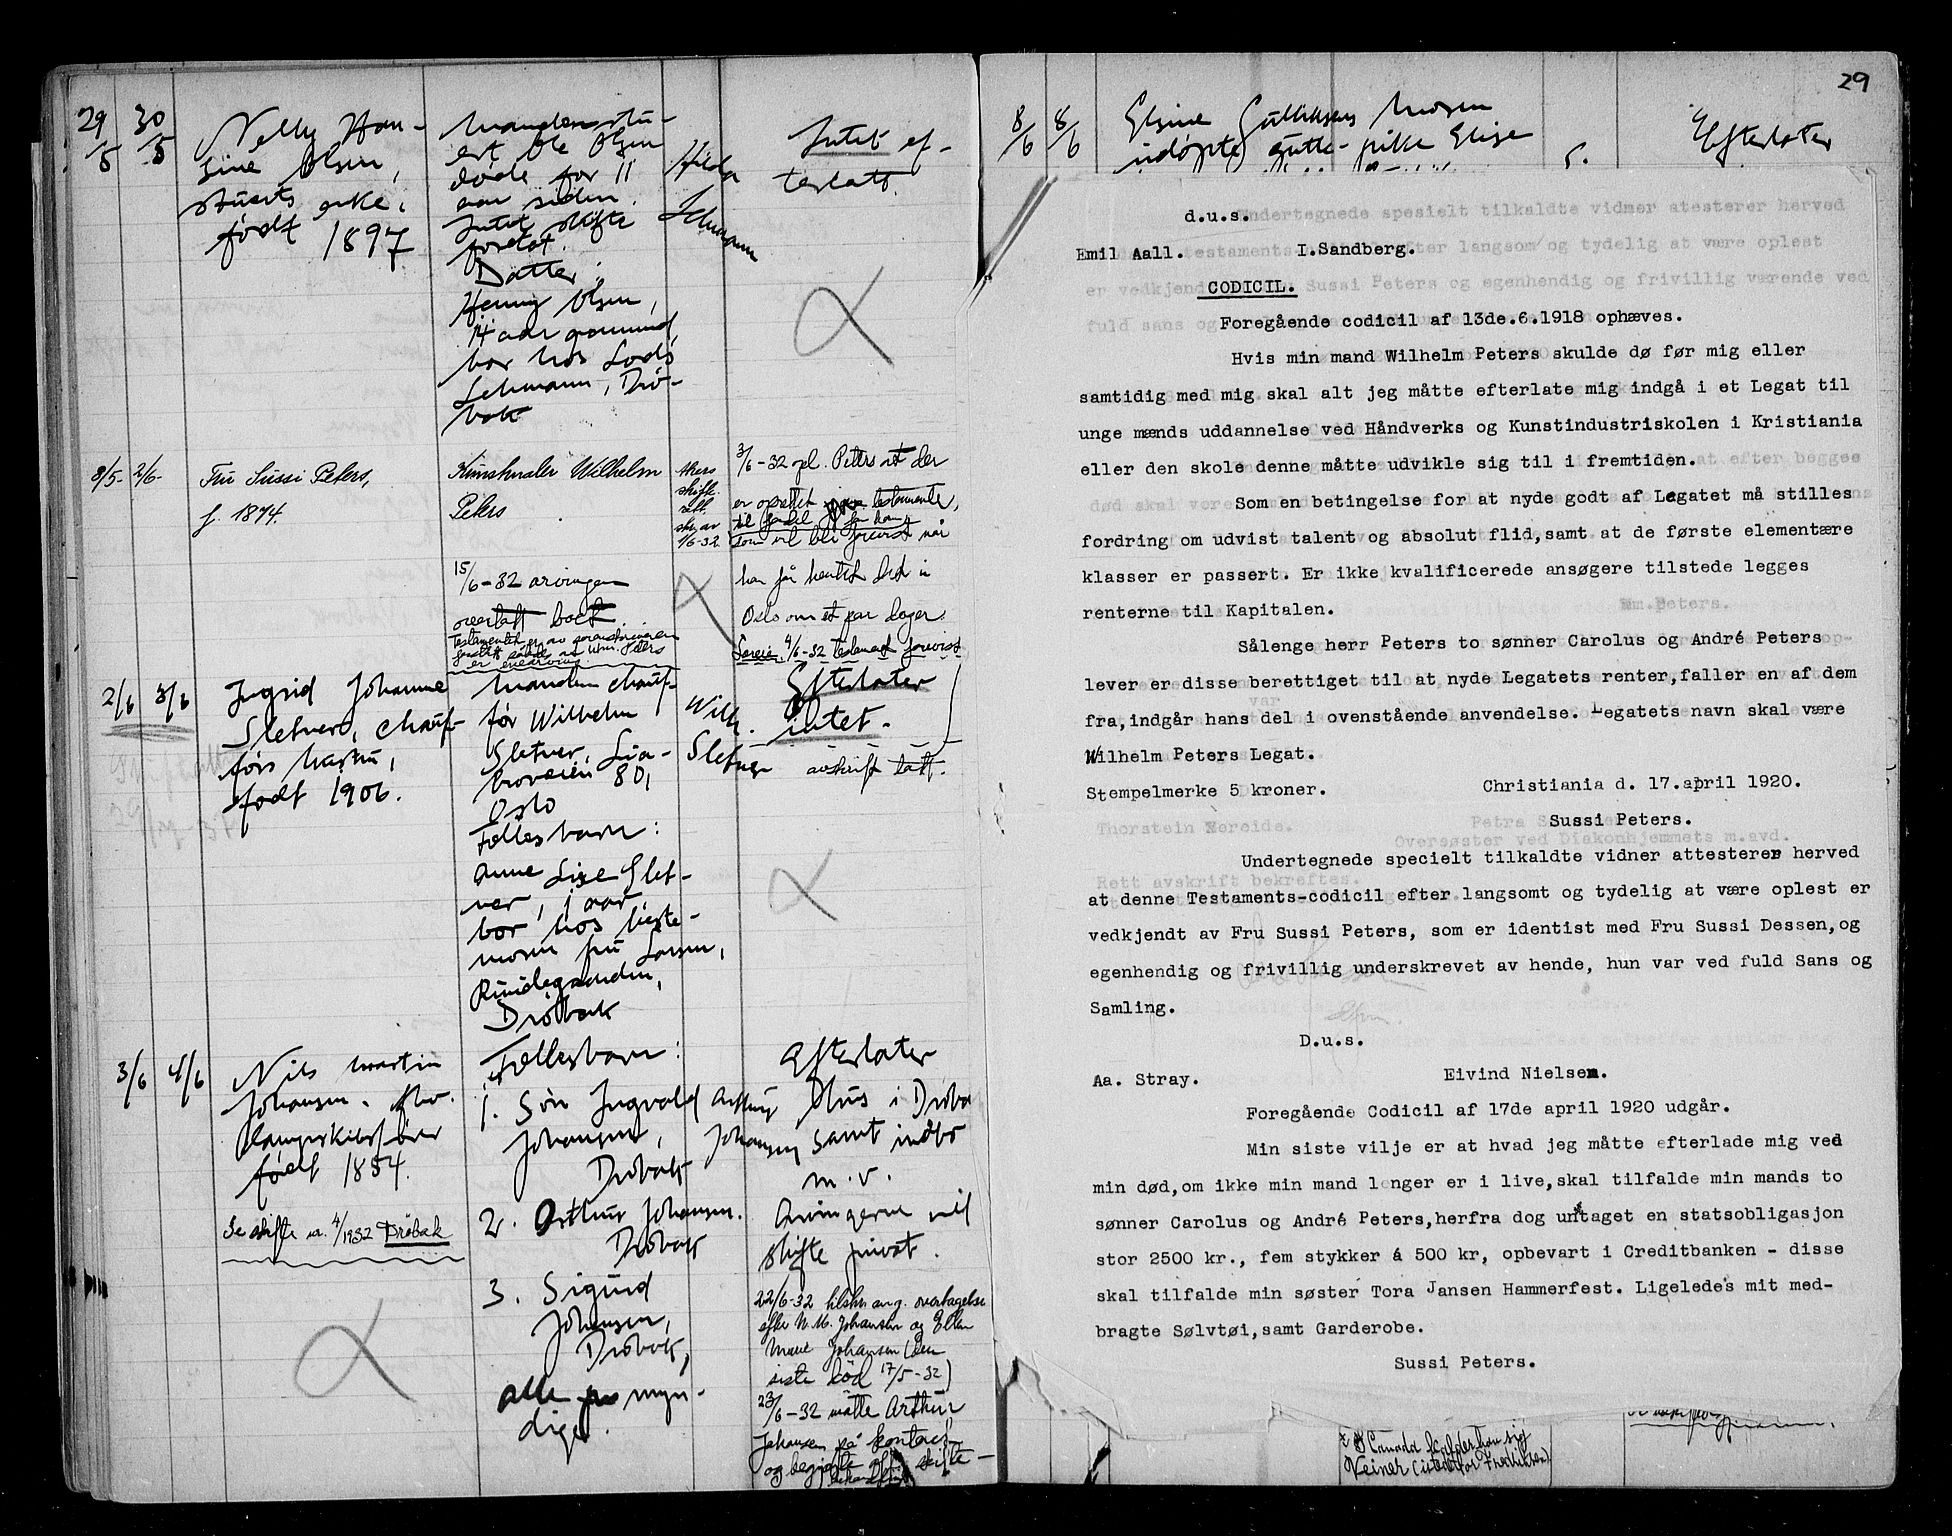 29/5 30/5 Nelly Han-
sine Olsen,
stuerts enke,
født 1897
Manden stu-
ert Ole Olsen
døde for 11
aar siden.
Intet skifte
foretat.
Datter:
Henny Olsen,
14 aar gammel
bor hos Lods
Lehmann, Drø-
bak
Hilda
Lehmann
Intet ef-
terlatt.
2/6- Fru Sussi Peters,
f. 1874.
Kunstmaler Wilhelm
Peters
15/6-32 arvingen
overtatt boet.
er enearving.
Akers
skifte-
rett.
skr. av
1/6-32
3/6-32 opl. Peters at der
er oprettet testamente,
til fordel for ham
som vil bli forevist når
han får hentet det i
Oslo om et par dager.
4/6-32 testament forevist
2/6 3/6 Ingrid Johanne
Sletner, chauf-
førs hustru,
født 1906.
Manden chauf-
før Wilhelm
Sletner, Lia-
broveien 80,
Oslo
Fellesbarn:
Anne Lise Slet-
ner, 1 aar
bor hos beste-
moren fru Larsen,
Drøbak
Wilh.
Sletner
Efterlater
intet.
avskrift tatt.
3/6 4/6 Nils Martin
Johansen, fhv.
født 1854.
Se skifte nr. 4/1932 Drøbak
Fellesbarn:
1. Søn Ingvald
Johansen,
Drøbak
2. Arthur Johansen.
Drøbak
3. Sigurd
Johansen,
Drøbak,
alle myn-
dige.
Arthur
Johansen
Efterlater
Hus i Drøba
samt indbo
m.v.
Arvingerne vil
skifte privat.
22/6-32 tilskr. ang. overtagelse
efter N. M. Johansen og Ellen
Marie Johansen (den
siste død 17/5-32)
23/6-32 møtte Arthur
Johansen på kontoret
og begjærte off. skifte-
behandling
29
8/6 8/6 Elsine Gulliksens
udøpte pike Elise
Efterlater
d.u.s.
Emil Aall. I.Sandberg.
CODICIL.
Foregående codicil af 13de.6.1918 ophæves.
Hvis min mand Wilhelm Peters skulde dø før mig eller
samtidig med mig skal alt jeg måtte efterlate mig indgå i et Legat til
unge mænds uddannelse ved Håndverks og Kunstindustriskolen i Kristiania
eller den skole denne måtte udvikle sig til i fremtiden.
Som en betingelse for at nyde godt af Legatet må stilles
fordring om udvist talent og absolut flid,samt at de første elementære
klasser er passert. Er ikke kvalificerede ansøgere tilstede legges
renterne til Kapitalen.
Sålenge herr Peters to sønner Carolus og André Peters
lever er disse berettiget til at nyde Legatets renter,faller en af dem
fra,indgår hans del i ovenstående anvendelse. Legatets navn skal være
Wilhelm Peters Legat.
Stempelmerke 5 kroner. Christiania d. 17.april 1920.
Sussi Peters.
Undertegnede specielt tilkaldte vidner attesterer herved
at denne Testaments-codicil efter langsomt og tydelig at være oplest er
vedkjendt av Fru Sussi Peters, som er identist med Fru Sussi Dessen,og
egenhendig og frivillig underskrevet av hende, hun var ved fuld Sans og
Samling.
D.u.s.
Aa. Stray. Eivind Nielsen.
Foregående Codicil af 17de april 1920 udgår.
Min siste vilje er at hvad jeg måtte efterlade mig ved
min død,om ikke min mand lenger er i live,skal tilfalde min mands to
sønner Carolus og André Peters,herfra dog untaget en statsobligasjon
stor 2500 kr., fem stykker á 500 kr, opbevart i Creditbanken - disse
skal tilfalde min søster Tora Jansen Hammerfest. Ligeledes mit med-
bragte Sølvtøi,samt Garderobe.
Sussi Peters.
I Canada kalder han sig
Neiner (istedetfor Fredriksen)